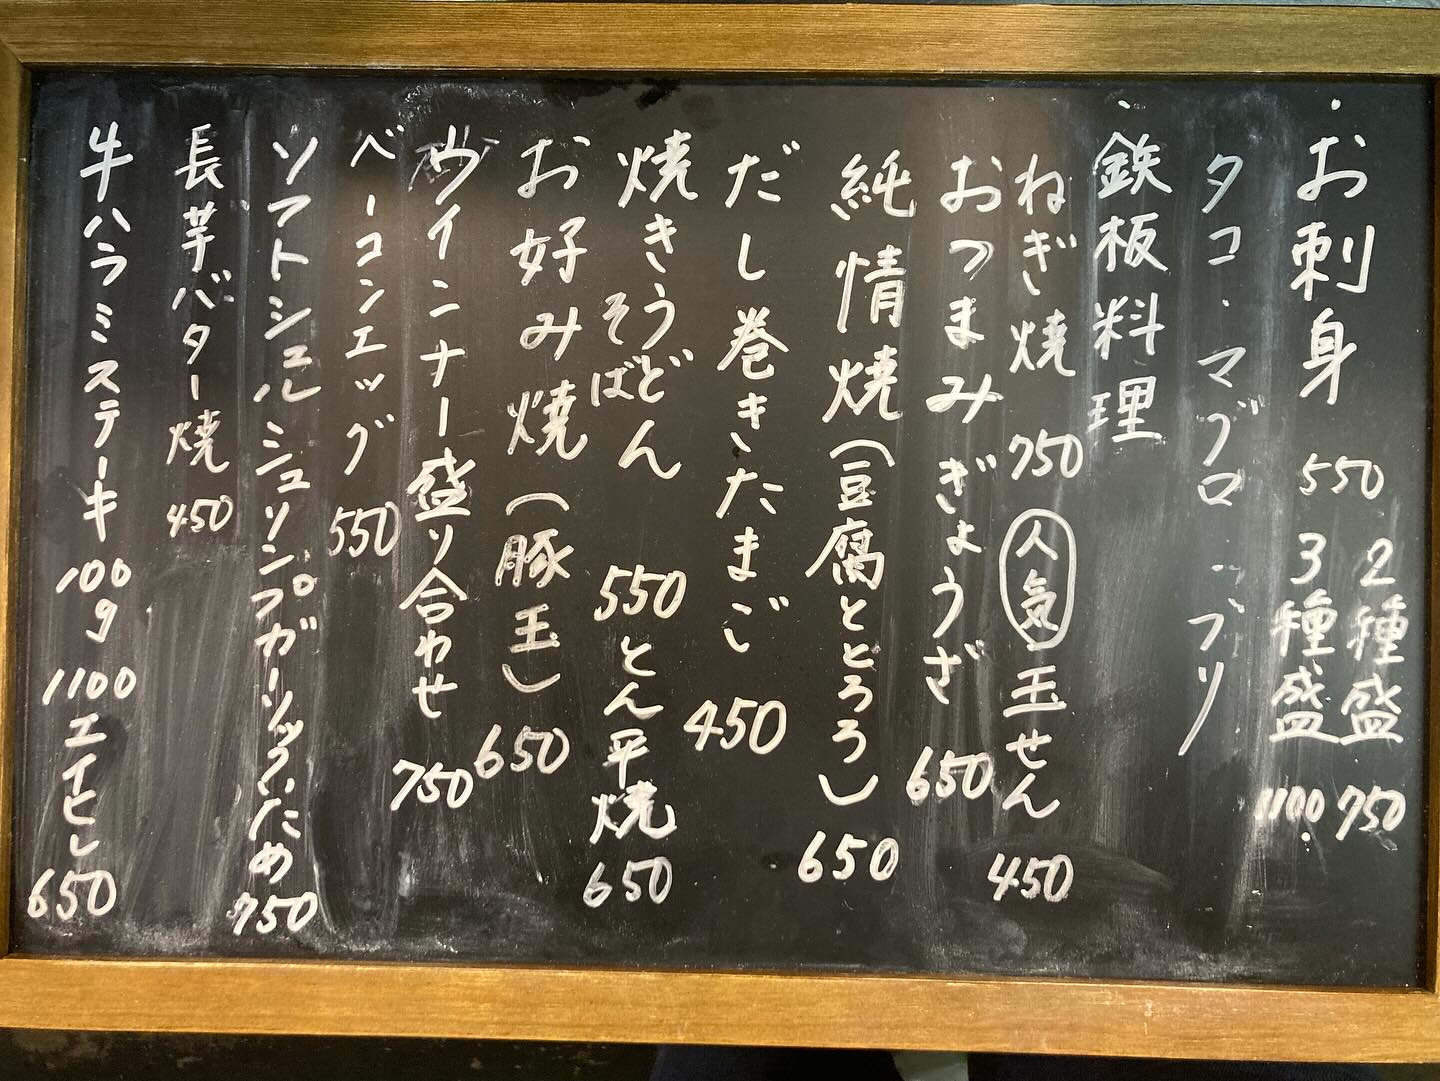 ・お刺身 550 2種盛 750
3種盛 1100
タコ・マグロ・ブリ
・鉄板料理
ねぎ焼 750 人気 玉せん 450
おつまみぎょうざ 650
純情焼(豆腐ととろろ) 650
だし巻きたまご 450
焼きうどん そば 550 とん平焼 650
お好み焼(豚玉) 650
ウインナー盛り合わせ 750
ベーコンエッグ 550
ソフトシェルシュリンプガーリックいため 750
長芋バター焼 450
牛ハラミステーキ 100g 1100 エイヒレ 650